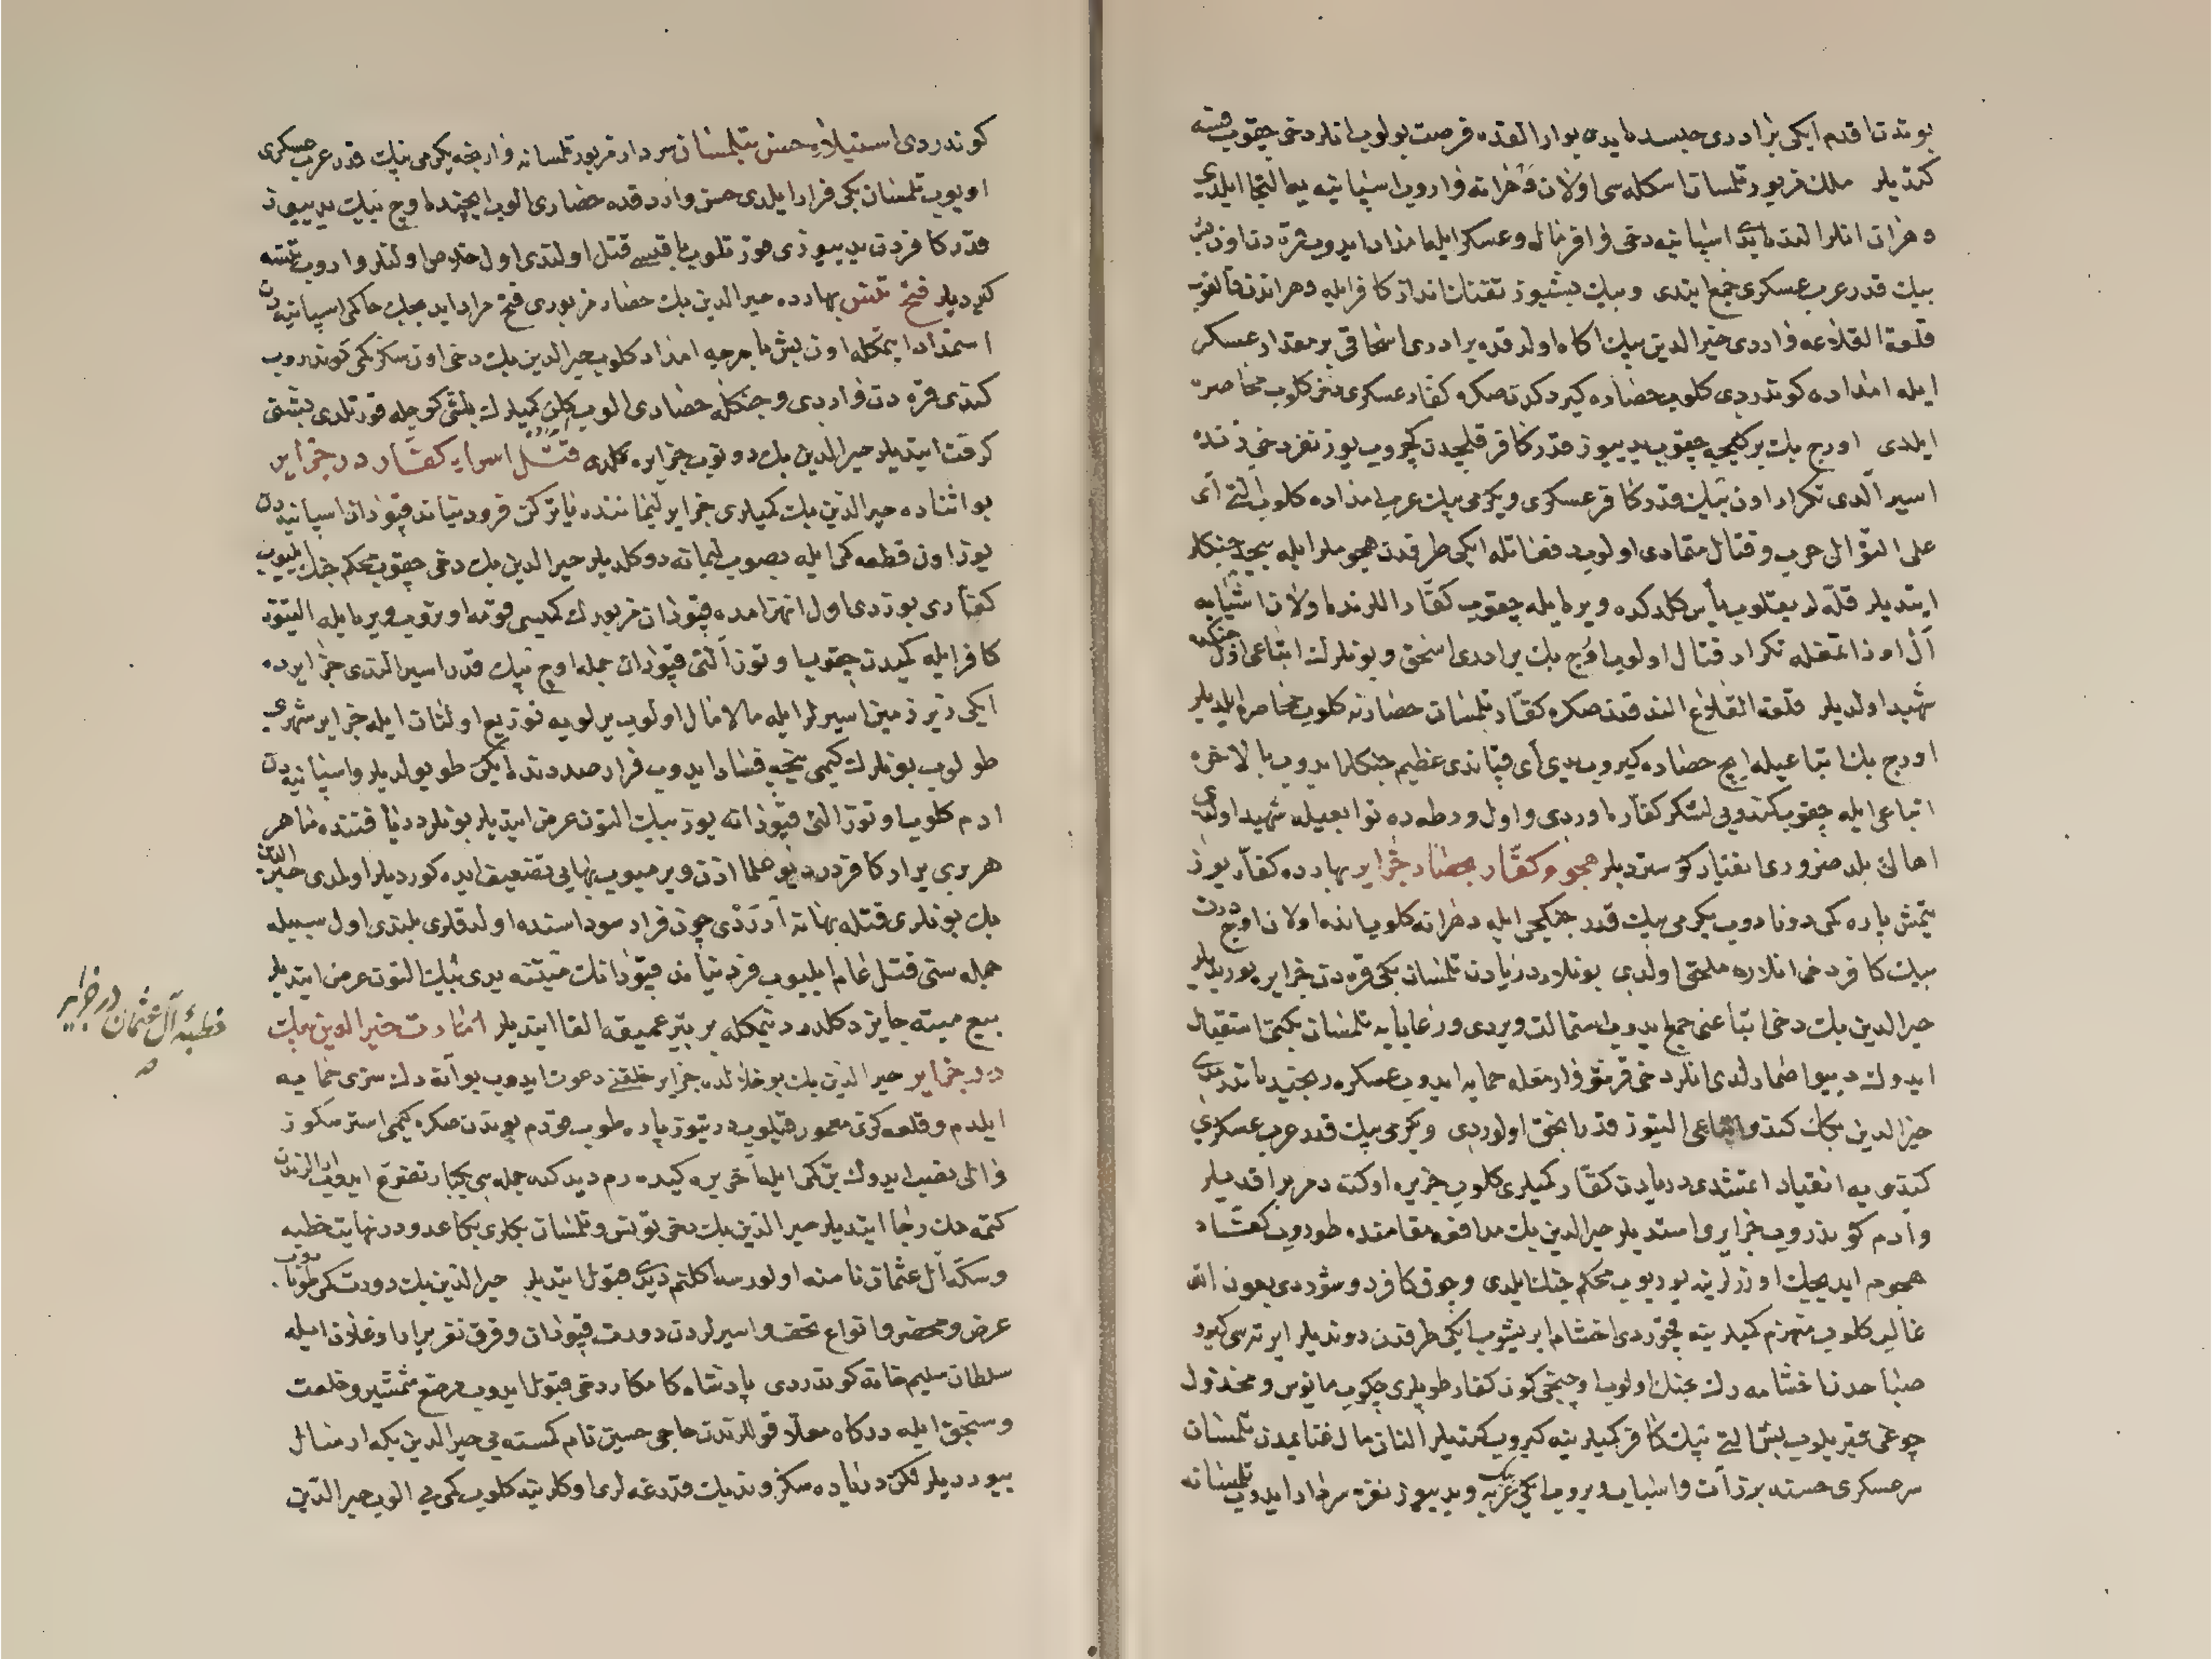 بوندن اقدم ایکی برادری حبسده ایدی بو ارالقده فرصت بولوب انلر دخی چیقوب فسه
کتدیلر ملك مزبور تلمسان اسکله سی اولان وهرانه واروب اسپانیه یه التجا ایلدی
وهران انلر النده ایدی اسپانیه دخی وافر مال وعسکر ایله امداد ایدوب قره دن اون بش
بیك قدر عرب عسکری جمع ایتدی وبیك بشیوز تفنك انداز کافر ایله وهراندن قالقوب
قلعة القلاعه واردی خیرالدین بیك اکاه اولدقده برادری اسحاقی بر مقدار عسکر
ایله امداده کوندردی کلوب حصاره کیردکدن صکره کفار عسکری دخی کلوب محاصره
ایلدی اورج بك بر کیجه چیقوب یدییوز قدر کافر قلیجدن کچوروب یوز نفر دخی زنده
اسیر آلدی تکرار اون بیك قدر کافر عسکری ویکرمی بیك عرب امداده کلوب التی آی
علی التوالی حرب وقتال متمادی اولوب دفعاتله ایکی طرفدن هجوملر ایله نیجه جنکلر
ایتدیلر قله لر یقیلوب یأس کلدکده ویره ایله چیقوب کفار اللرنده اولان اشیایه
آل اوزاتمغله تکرار قتال اولوب اورج بك برادری اسحق وبونلرك اتباعی اول جنکده
شهید اولدیلر قلعة القلاع الندقدن صکره کفار تلمسان حصارنه کلوب محاصره ایلدیلر
اورج بك اتباعیله ایچ حصاره کیروب یدی آی قپاندی عظیم جنکلر ایدوب بالاخره
اتباعی ایله چیقوب کندویی لشکر کفاره اوردی واول ورطه ده توابعیله شهید اولدی
اهالئ بلد ضروری انقیاد کوستردیلر هجوم کفار بحصار جزایر بهارده کفار یوز
یتمش پاره کمی دونادوب یکرمی بیك قدر جنکجی ایله وهرانه کلوب انده اولان اوچ درت
بیك کافر دخی انلاره ملحق اولدی بونلار دریادن تلمسان بکی قره دن جزایره یوریدیلر
خیرالدین بك دخی اتباعنی جمع ایدوب استمالت ویردی ورعایایه تلمسان بکینی استقبال
ایدوك دیو اصمارلدی انلر دخی قرشو وارمغله حمایه ایدوب عسکره رنجیده ایتدرمدی
خیرالدین بکك کندو اتباعی التیوز قدر انجق اولوردی ویکرمی بیك قدر عرب عسکری
کندی یه انقیاد اتمشدی دریادن کفار کمیلری کلوب جزیره اوکنه دمر براقدیلر
وآدم کوندروب جزایری استدیلر خیرالدین بك مدافعه مقامنده طوروب کفار
هجوم ایدیجك اوزرلرینه یوریوب محکم جنك ایلدی وچوق کافر دوشوردی بعون الله
غالب کلوب منهزم کمیلرینه قچوردی اخشام ایریشوب ایکی طرفدن دوندیلر ایرته سی کیرو
صباحدن اخشامه دك جنك اولوب اوچنجی کون کفار طوپلری چکوب مأیوس ومخذول
چوغی قیریلوب بش التی بیك کافر کمیلرینه کیروب کتدیلر النان مال غنایمدن تلمسان
سرعسکری حسنه برز آت واسباب ویروب ایکی بیك عربه ویدییوز نفره سردار ایدوب تلمسانه
کوندردی استیلاء حسن بتلمسان سردار مزبور تلمسانه وارنجه یکرمی بیك قدر عرب عسکری
اویوب تلمسان بکی فرار ایلدی حسن واردقده حصاری الوب ایچنده اوچ بیك یدییوز
قدر کافردن یدییوزی هنوز قلوب باقیسی قتل اولندی اول خلاص اولنلر واروب تنسه
کیردیلر فتح تنس بهارده خیرالدین بك حصار مزبوری فتح مراد ایدیجك حاکمی اسپانیه دن
استمداد ایتمکله اون بش بارچه امداد کلوب خیرالدین بك دخی اون سکز کمی کوندروب
کندی قره دن واردی وجنکله حصاری الوب کلن کمیلرك بشی کوجله قورتلدی بشنی
کرفت ایتدیلر خیرالدین بك دونوب جزایره کلدی قتل اسراء کفار در جزایر
بو اثناده خیرالدین بك کمیلری جزایر لیماننده یاتورکن فردنیاند قپودان اسپانیه دن
یوز اون قطعه کمی ایله بصوب لیمانه دوکلدیلر خیرالدین بك دخی چیقوب محکم جنك ایلیوب
کفاری بوزدی اول انهزامده قپودان مزبورك کمیسی قومه اوتروب ویره ایله التیوز
کافر ایله کمیدن چیقوب اوتوز آلتی قپودان جمله اوچ بیك قدر اسیر الندی جزایرده
ایکی زیر زمین اسیرلر ایله مالامال اولوب یرلویه توزیع اولنان ایله جزایر شهری
طولوب بونلرك کیمی نیجه فساد ایدوب فرار صددنده ایکن طویولدیلر واسپانیه دن
ادم کلوب اوتوز التی قپودانه یوز بیك التون عرض ایتدیلر بونلر دریا فننده ماهر
هر بری یرار کافردر دیو علما اذن ویرمیوب نهایی تضعیف ایده کوردیلر اولمدی خیرالدین
بك بونلری قتله بهانه آرردی چون فرار سوداسنده اولدقلری بلندی اول سببله
جمله سنی قتل عام ایلیوب فردنیاند قپودانك میتنه یدی بیك التون عرض ایتدیلر
بیع میته جایز دکلدر دیمکله بر بئر عمیقه القا ایتدیلر امارت خیرالدین بك
در جزایر خیرالدین بك بو خلالده جزایر خلقنی دعوت ایدوب بو آنه دك سزی حمایه
ایلدم وقلعه کزی معمور قیلوب درتیوز پاره طوپ قودم بوندن صکره کیمی استرسکوز
والی نصب ایدوك بن کمی ایله آخر یره کیده رم دیدکده جمله سی یکبار تضرع ایدوب الزمدن
کتمه دك رجا ایتدیلر خیرالدین بك دخی تونس وتلمسان بکلری بکا عدودر نهایت خطبه
وسکه آل عثمان نامنه اولورسه اکلنم دیدی قبول ایتدیلر خیرالدین بك دورت کمی طونادوب
عرض ومحضر وانواع تحف واسیرلردن دورت قپودان وقرق نفر یرار اوغلان ایله
سلطان سلیم خانه کوندردی پادشاه کامکار دخی قبول ایدوب مرصع شمشیر وخلعت
وسنجق ایله درکاه معلا قوللرندن حاجی حسین نام کمسنه یی خیرالدین بکه ارسال
بیوردیلر لکن دریاده سکز وندیك قدرغه لری اوکلرینه کلوب کمی یی الوب خیرالدین
خطبۀ آل عثمان در جزایر